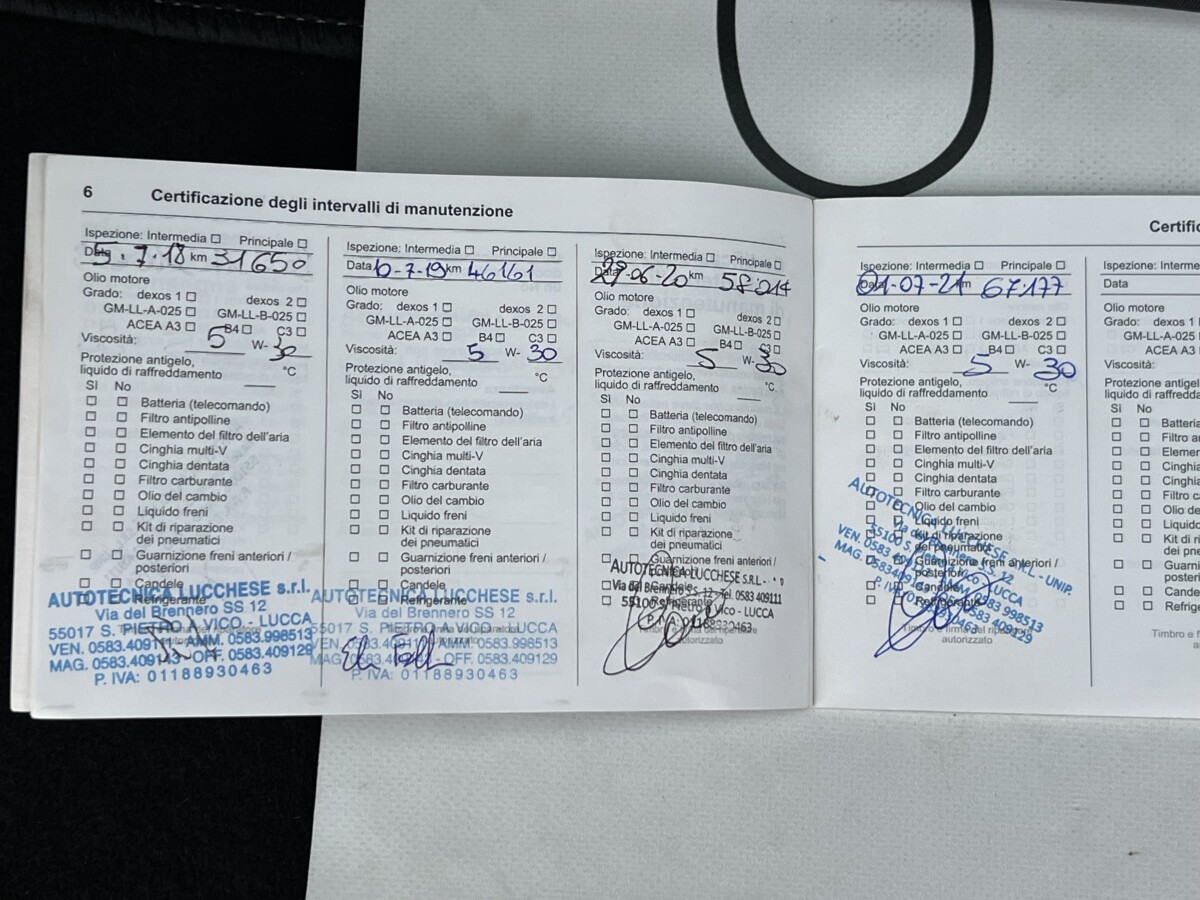 6 Certificazione degli intervalli di manutenzione
Ispezione: Intermedia Principale
Data 5.7.18 km 31650
Olio motore
Grado: dexos 1 dexos 2
GM-LL-A-025 GM-LL-B-025
ACEA A3 B4 C3
Viscosità: 5 W- 30
Protezione antigelo,
liquido di raffreddamento °C
Sì No
Batteria (telecomando)
Filtro antipolline
Elemento del filtro dell'aria
Cinghia multi-V
Cinghia dentata
Filtro carburante
Olio del cambio
Liquido freni
Kit di riparazione
dei pneumatici
Guarnizione freni anteriori /
posteriori
Candele
Refrigerante
AUTOTECNICA LUCCHESE s.r.l.
Via del Brennero SS 12
55017 S. PIETRO A VICO - LUCCA
VEN. 0583.409111 AMM. 0583.998513
MAG. 0583.409143 OFF. 0583.409129
P. IVA: 01188930463
Ispezione: Intermedia Principale
Data 10-7-19 km 46161
Olio motore
Grado: dexos 1 dexos 2
GM-LL-A-025 GM-LL-B-025
ACEA A3 B4 C3
Viscosità: 5 W- 30
Protezione antigelo,
liquido di raffreddamento °C
Sì No
Batteria (telecomando)
Filtro antipolline
Elemento del filtro dell'aria
Cinghia multi-V
Cinghia dentata
Filtro carburante
Olio del cambio
Liquido freni
Kit di riparazione
dei pneumatici
Guarnizione freni anteriori /
posteriori
Candele
Refrigerante
AUTOTECNICA LUCCHESE s.r.l.
Via del Brennero SS 12
55017 S. PIETRO A VICO - LUCCA
AMM. 0583.998513
OFF. 0583.409129
P. IVA: 01188930463
Ispezione: Intermedia Principale
Data 29-06-20 km 58.014
Olio motore
Grado: dexos 1 dexos 2
GM-LL-A-025 GM-LL-B-025
ACEA A3 B4 C3
Viscosità: 5 W- 30
Protezione antigelo,
liquido di raffreddamento °C
Sì No
Batteria (telecomando)
Filtro antipolline
Elemento del filtro dell'aria
Cinghia multi-V
Cinghia dentata
Filtro carburante
Olio del cambio
Liquido freni
Kit di riparazione
dei pneumatici
Guarnizione freni anteriori /
AUTOTECNICA LUCCHESE S.R.L.
Via del Brennero SS. 12 Tel. 0583 409111
55100 S. Pietro a Vico - LUCCA
P. IVA 01188930463
autorizzato
Certific
Ispezione: Intermedia Principale
Data 01-07-21 km 67.177
Olio motore
Grado: dexos 1 dexos 2
GM-LL-A-025 GM-LL-B-025
ACEA A3 B4 C3
Viscosità: 5 W- 30
Protezione antigelo,
liquido di raffreddamento °C
Sì No
Batteria (telecomando)
Filtro antipolline
Elemento del filtro dell'aria
Cinghia multi-V
Cinghia dentata
Filtro carburante
Olio del cambio
Liquido freni
Kit di riparazione
dei pneumatici
Guarnizione freni anteriori /
posteriori
Candele
Refrigerante
AUTOTECNICA LUCCHESE S.R.L. - UNIP.
Timbro e firma del riparatore
autorizzato
Ispezione: Interme
Data
Olio motore
Grado: dexos 1
GM-LL-A-025
ACEA A3
Viscosità:
Protezione antige
liquido di raffredda
Sì No
Batteria
Filtro a
Elemen
Cinghia
Cinghia
Filtro c
Olio de
Liquido
Kit di ri
dei pn
Guarni
posteri
Cande
Refrige
Timbro e f